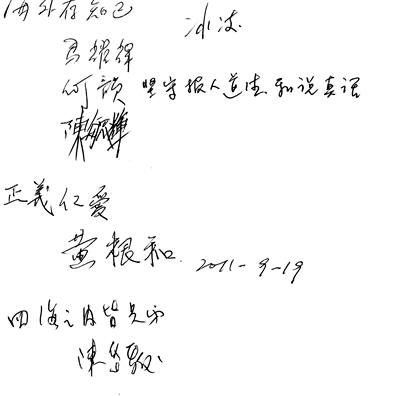 海外存知己
冰凌
何韻 堅守报人道德 和说真话
陳
正義仁爱
黄根和 2011-9-19
四海之内皆兄弟
陳